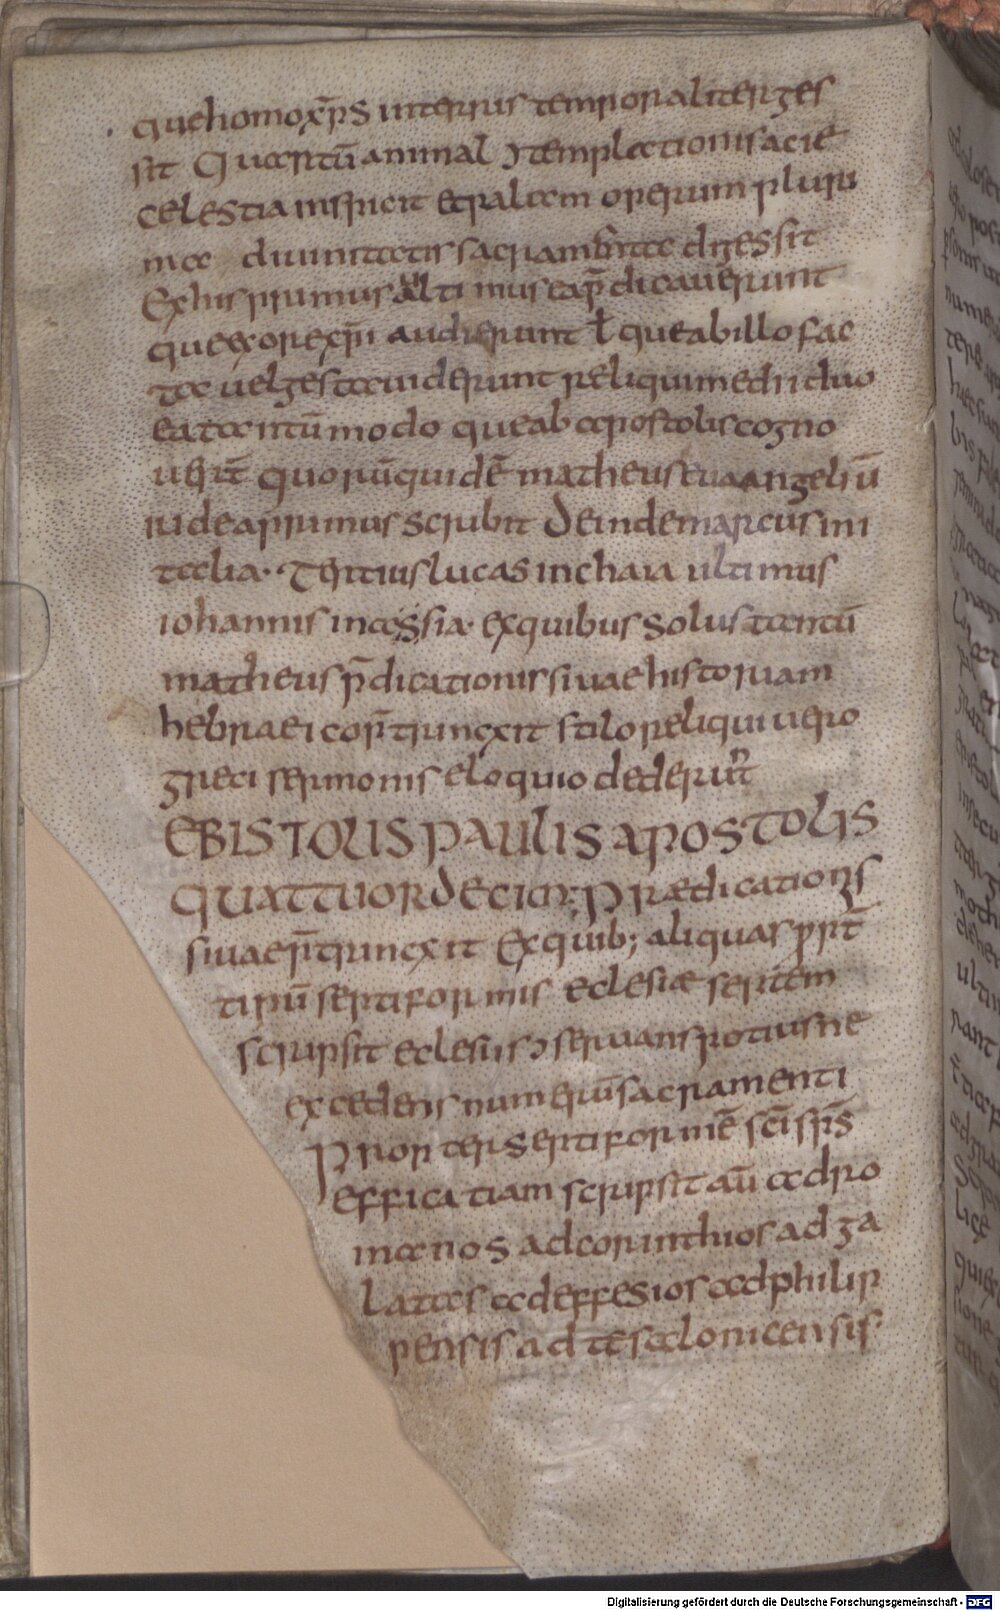 que homo xp̄s in terris temporaliter ges
sit Quartū animal ɔtemplationis acie
celestia inspicit et palam operum pluri
ma divinitatis sacramenta digessit
Ex his primus & ultimus ea p̄dicauerunt
que ex ore xp̄i audierunt ł que ab illo fac
ta uel gesta uiderunt reliqui medii duo
ea tantū modo que ab apostolis cogno
uer̄t quorū quidē matheus euaangeliū
iudea primus scribit Deinde marcus in i
talia · Tertius lucas in chaia ultimus
iohannis in assia · ex quibus solus tantū
matheus p̄dicationis suae historiam
hebraeico p̄trincxit stilo reliqui uero
greci sermonis eloquio dederūt
EBISTOLIS PAULIS APOSTOLIS
QUATTUORDECIM: Prædicationis
suae p̄trincxit Ex quib; aliquas pr̄t
tipū septiformis eclesiæ septem
scripsit eclesiis ɔseruans potius ne
excedens numerū sacramenti
Propter septiformē sc̄i sp̄s
efficatiam scripsit aū ad ro
manos ad corinthios ad ga
latas ad effesios ad philip
pensis ad tesalonicensis
Digitalisierung gefördert durch die Deutsche Forschungsgemeinschaft - DFG